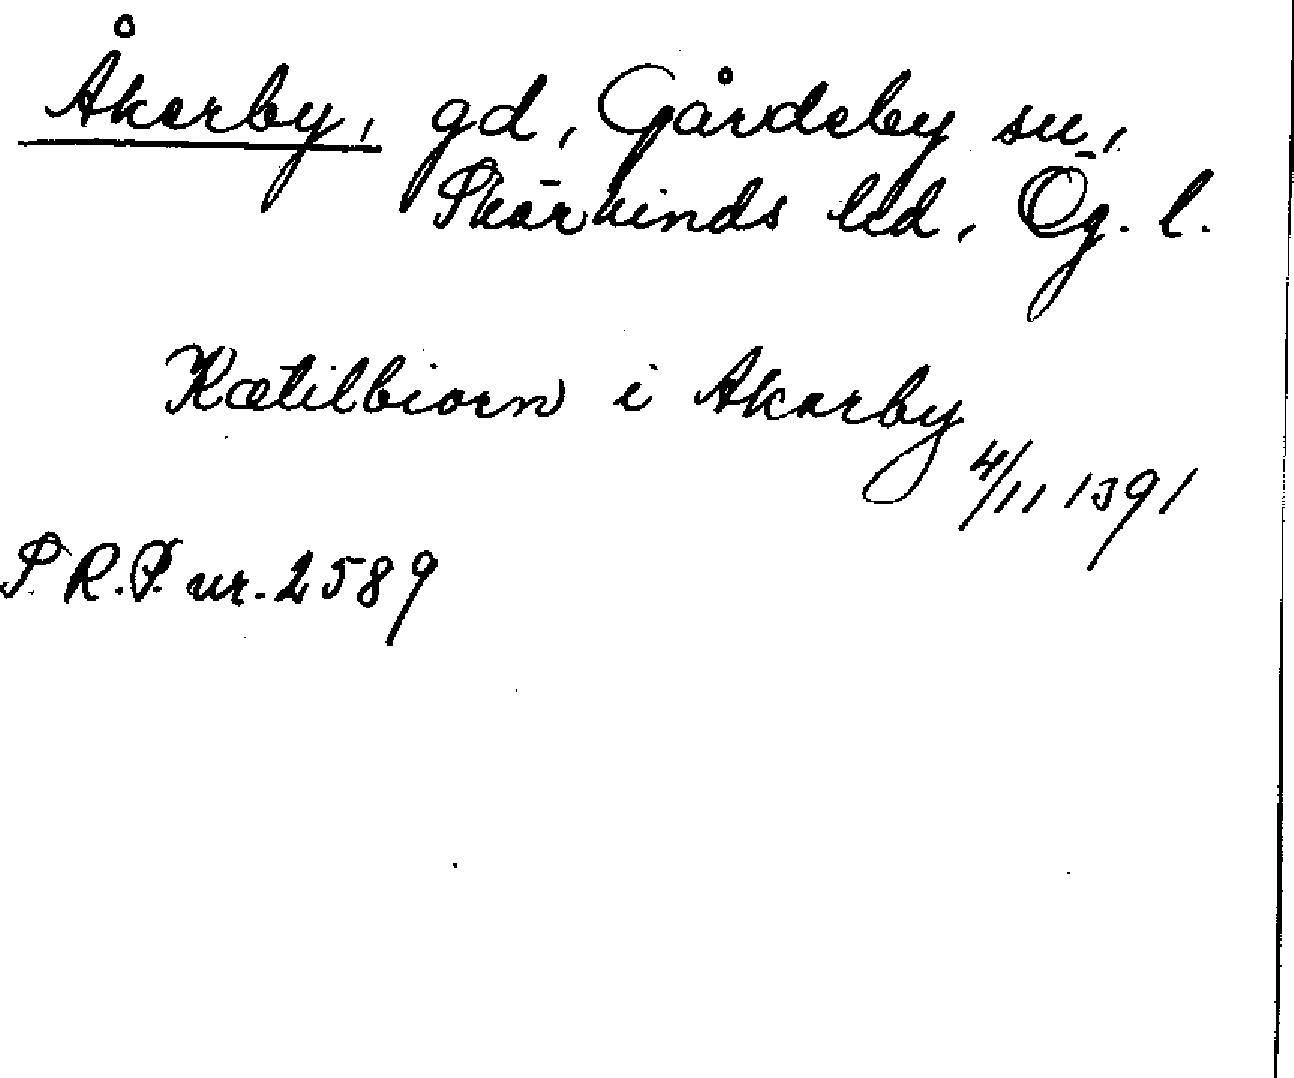 Åkerby, gd, Gårdeby sn,
Skärkinds hd, Ög. l.
Kætilbiorn i Akerby
4/11 1391
S.R.P. nr. 2589